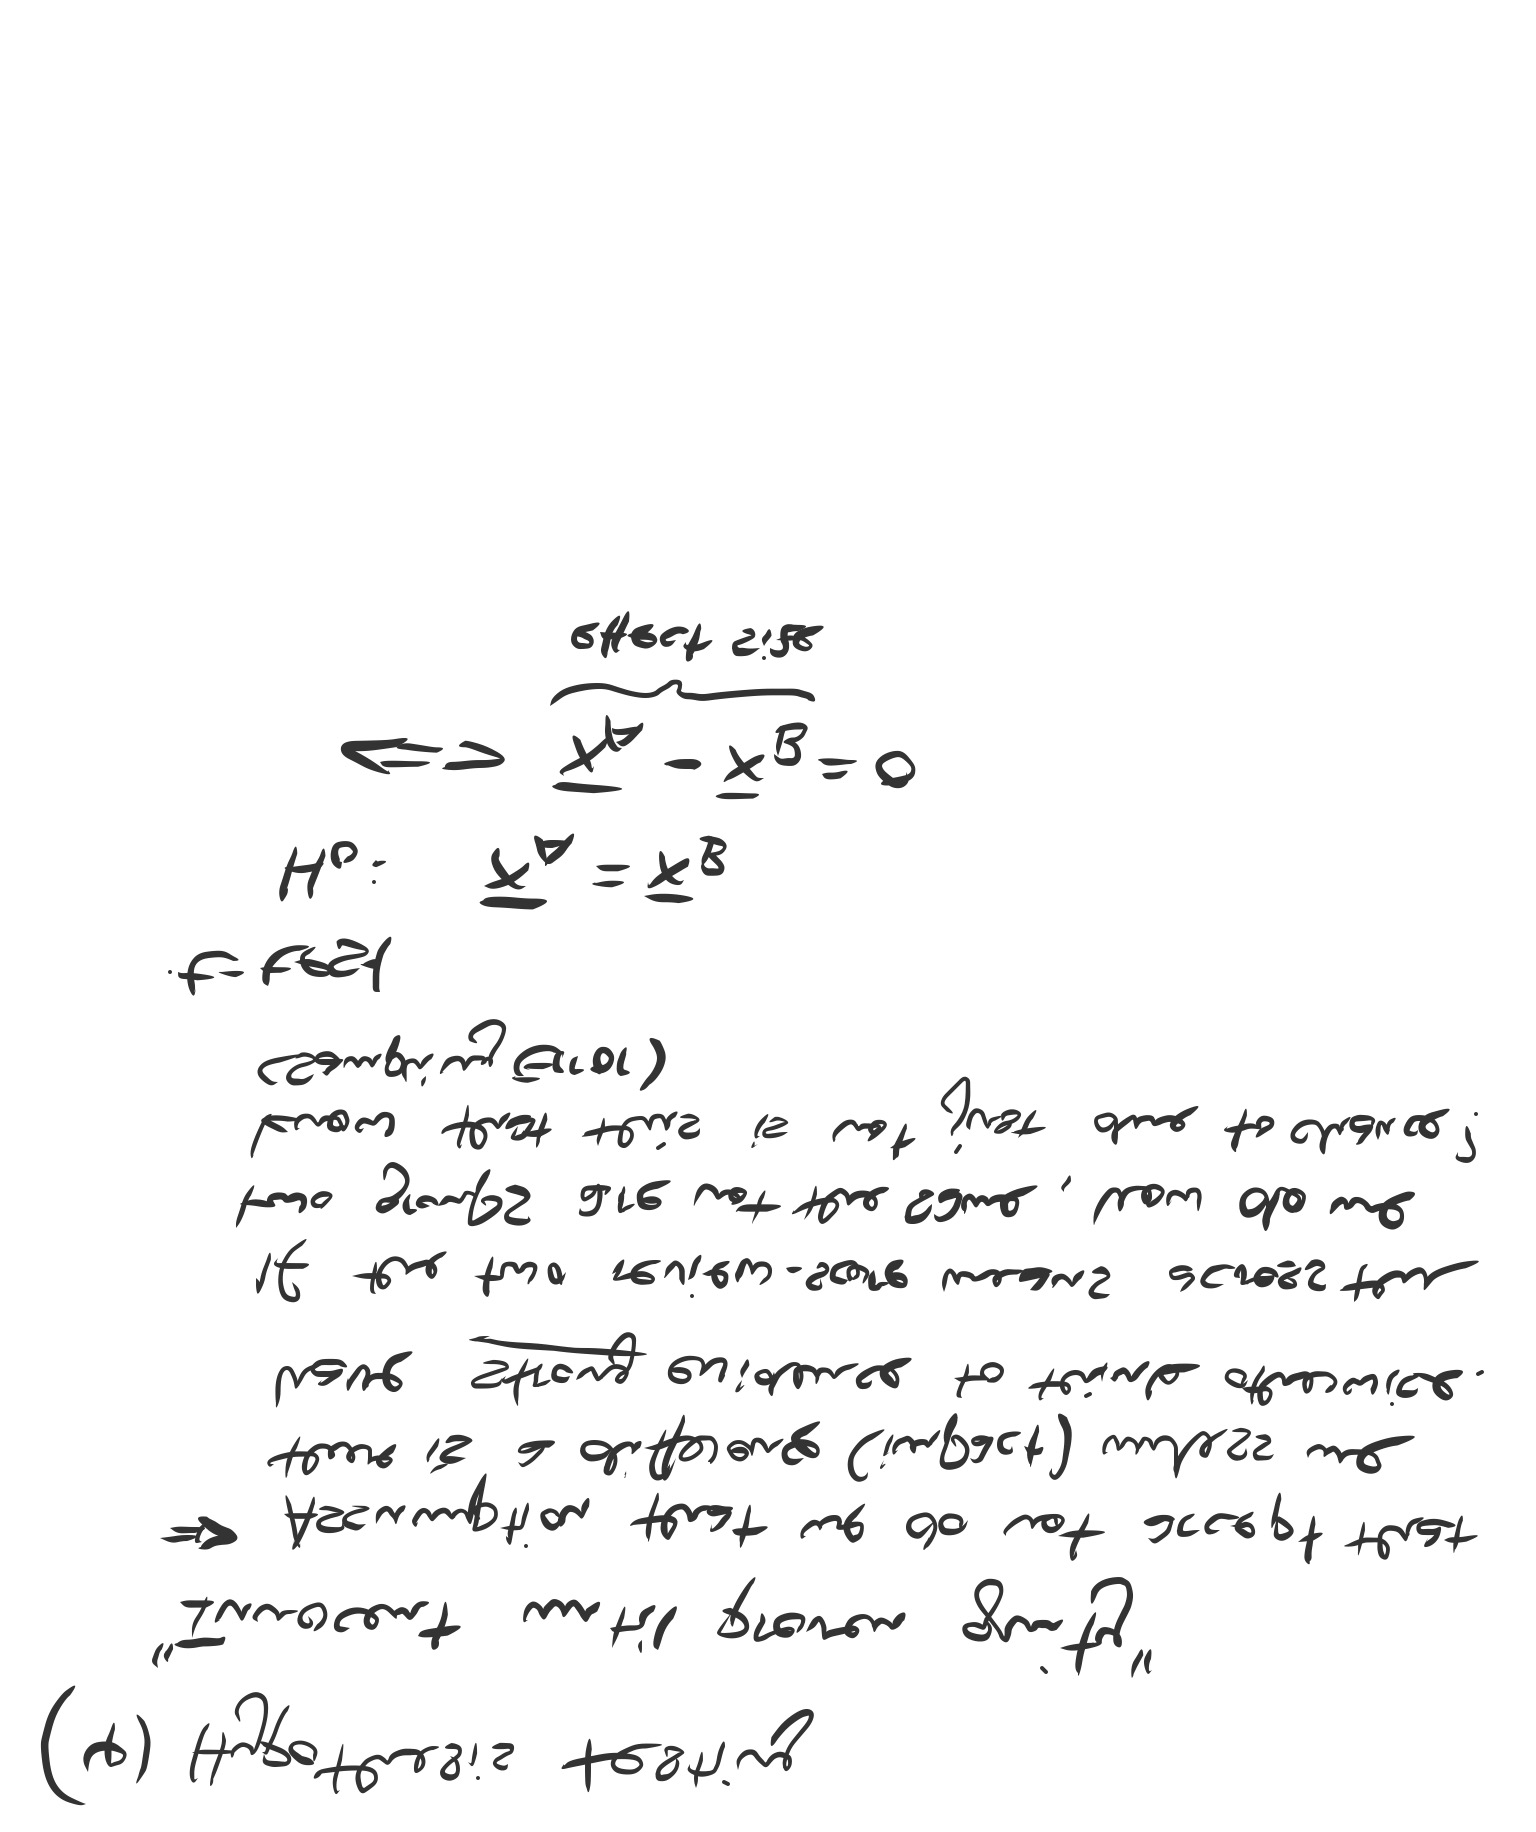 (4) Hypothesis testing
"Innocent until proven guilty"
⇒ Assumption that we do not accept that
there is a difference (impact) unless we
have strong evidence to think otherwise.
If the two review-score means across the
two groups are not the same, how do we
know that this is not just due to chance?
(Sampling Error)
t-test
H₀: x̄_A = x̄_B
<=> x̄_A - x̄_B = 0
effect size